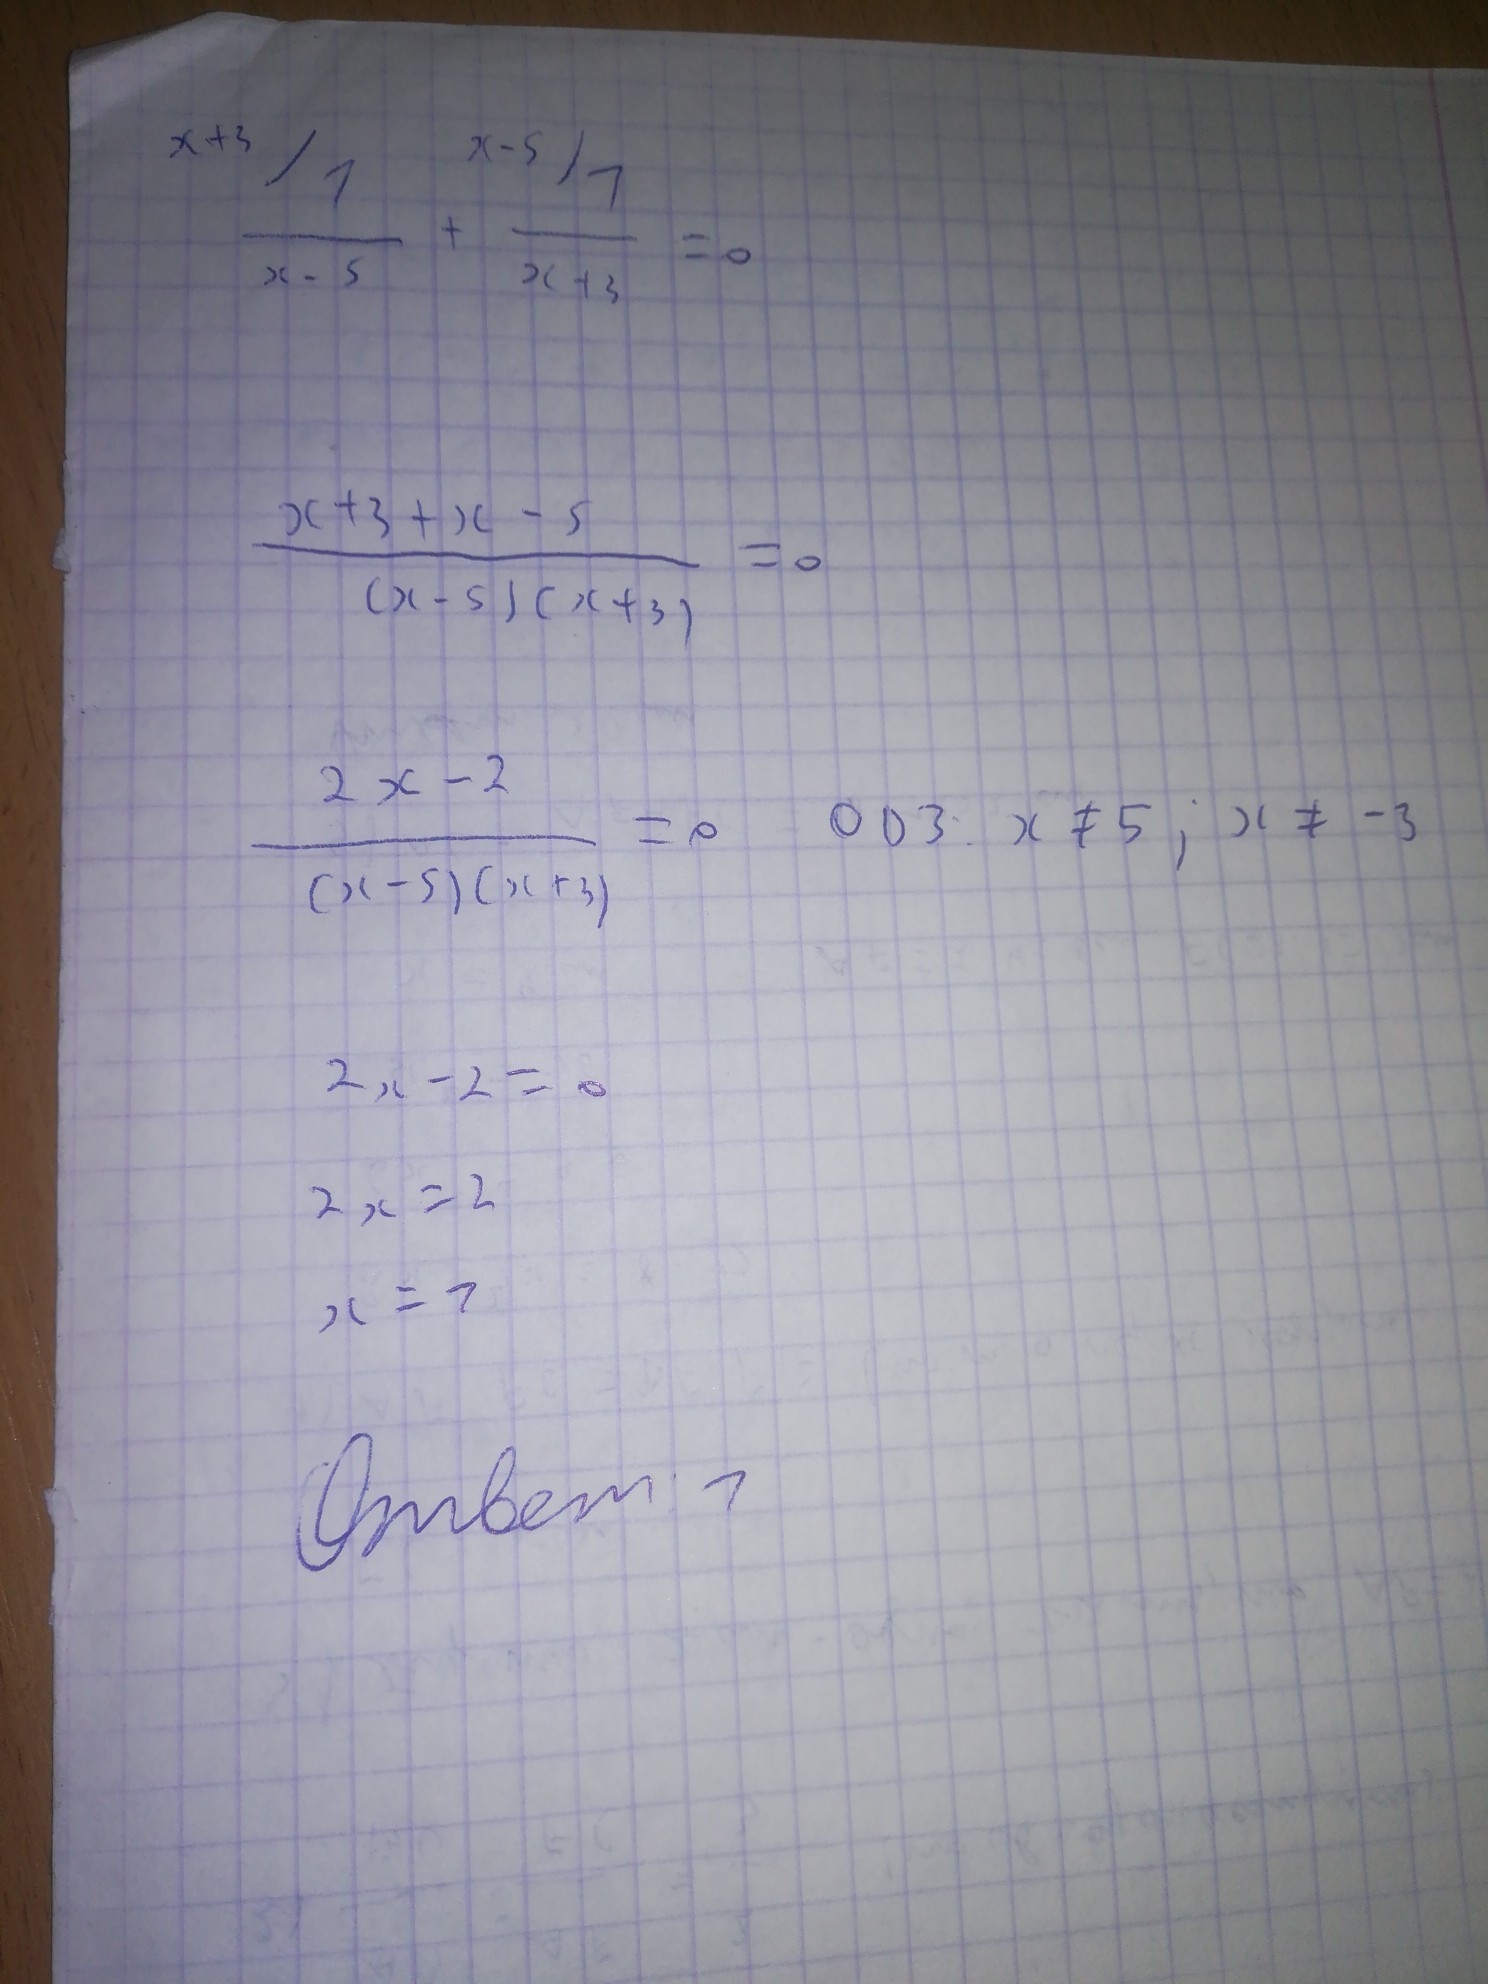 x+3/ 1 x-5/ 1
x-5 + x+3 =0
x+3+x-5
(x-5)(x+3) =0
2x-2
(x-5)(x+3) =0 ОДЗ: x≠5; x≠-3
2x-2=0
2x=2
x=1
Ответ: 1